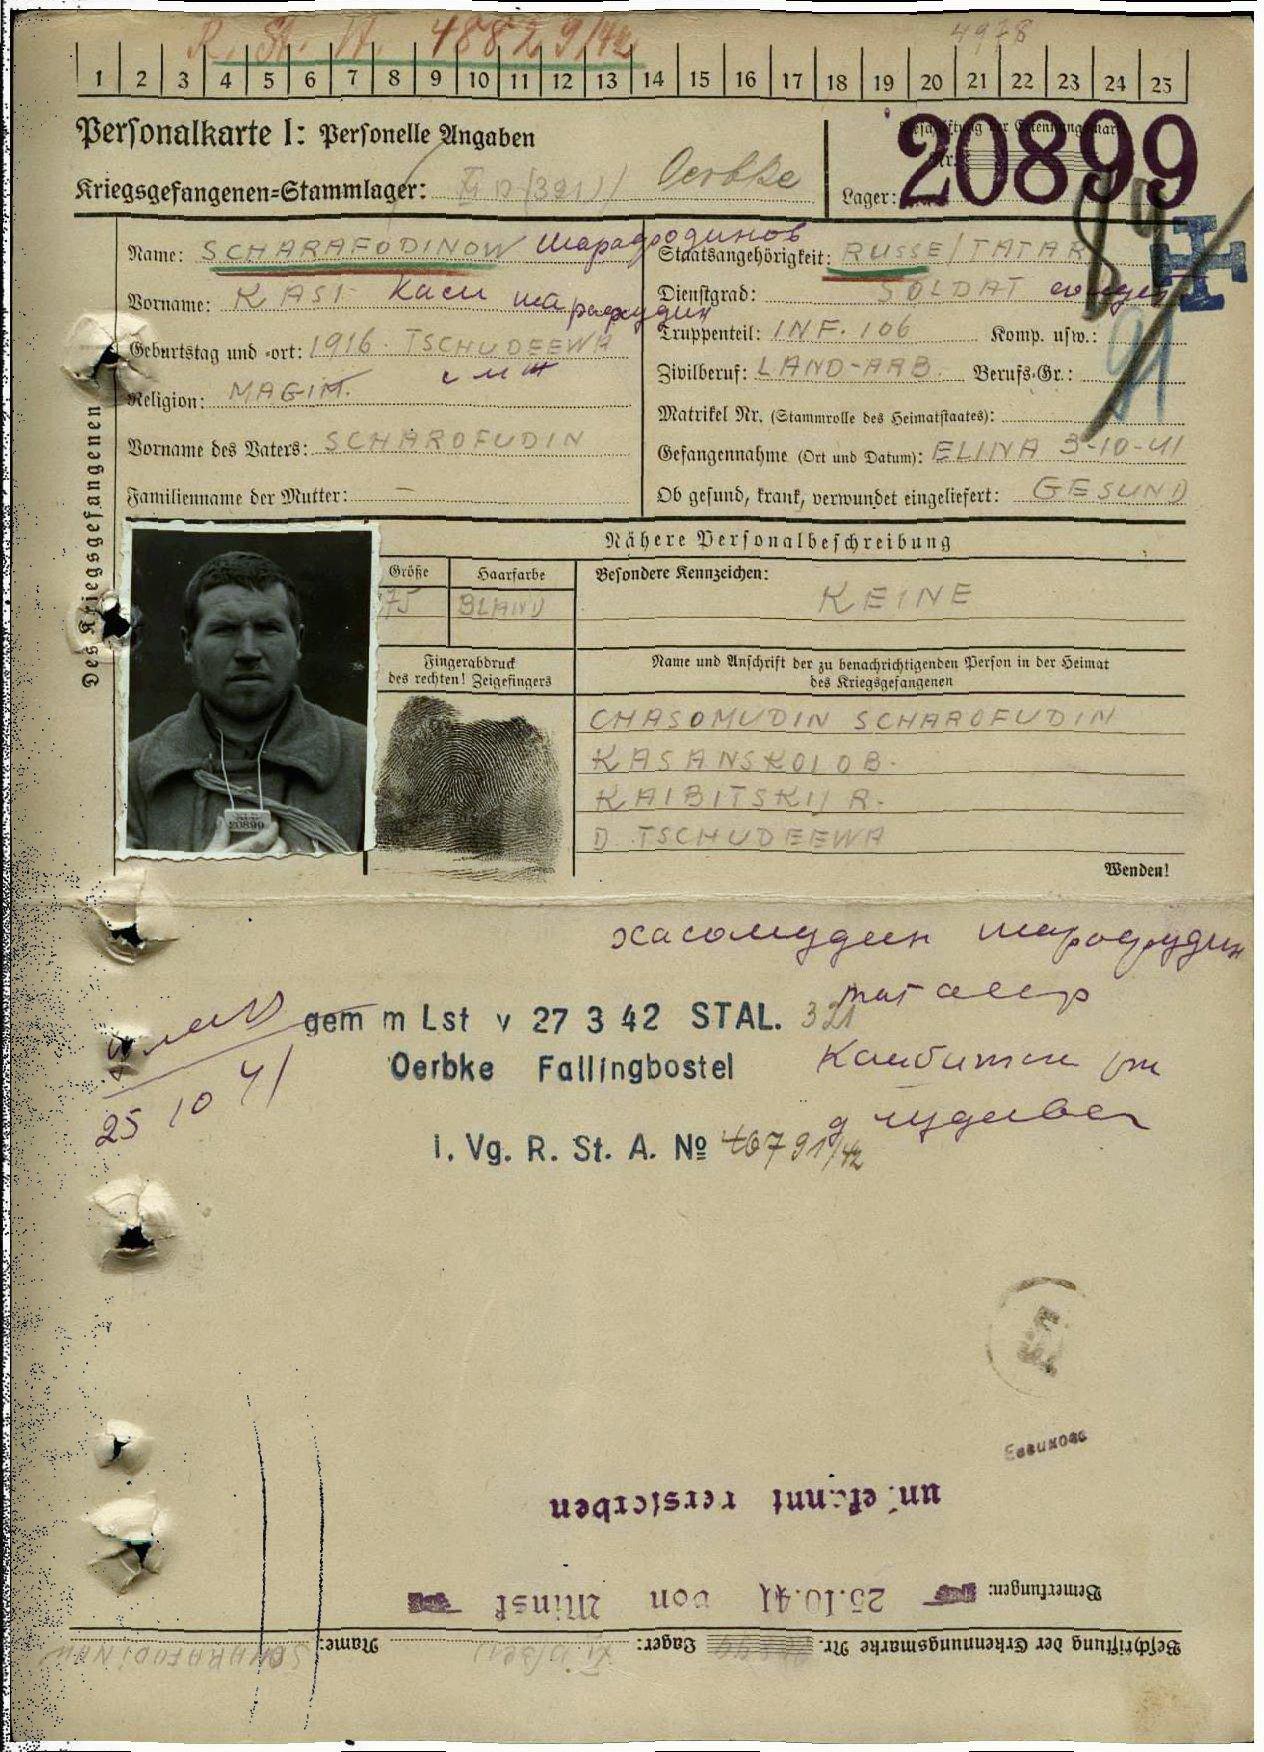 R. St. A. 48829/42
4978
1 2 3 4 5 6 7 8 9 10 11 12 13 14 15 16 17 18 19 20 21 22 23 24 25
Personalkarte I: Personelle Angaben
Kriegsgefangenen=Stammlager: XI D (321) Oerbke
Beschriftung der Erkennungsmarke
Nr. 20899
Lager:
Des Kriegsgefangenen
Name: SCHARAFODINOW Шарафодинов
Vorname: KASI Каси шарафудин
Geburtstag und =ort: 1916 TSCHUDEEWA
Religion: MAGIM.
Vorname des Vaters: SCHAROFUDIN
Familienname der Mutter: –
Staatsangehörigkeit: RUSSE/TATAR
Dienstgrad: SOLDAT
Truppenteil: INF. 106 Komp. usw.:
Zivilberuf: LAND-ARB. Berufs=Gr.:
Matrikel Nr. (Stammrolle des Heimatstaates):
Gefangennahme (Ort und Datum): ELINA 3-10-41
Ob gesund, krank, verwundet eingeliefert: GESUND
91
Nähere Personalbeschreibung
Größe Haarfarbe Besondere Kennzeichen:
75 BLAND KEINE
Fingerabdruck
des rechten! Zeigefingers
Name und Anschrift der zu benachrichtigenden Person in der Heimat
des Kriegsgefangenen
CHASOMUDIN SCHAROFUDIN
KASANSKOI OB.
KAIBITSKIJ R.
D. TSCHUDEEWA
20899
Wenden!
хасомудин шарофудин
тат
gem m Lst v 27 3 42 STAL. 321
Oerbke Fallingbostel
25 10 41
I. Vg. R. St. A. № 46791/42
д чудеева
Евсиков
unbekannt verstorben
Bemerkungen: 25.10.41 von Minsk
Beschriftung der Erkennungsmarke Nr. Lager: Name: SCHARAFODINOW